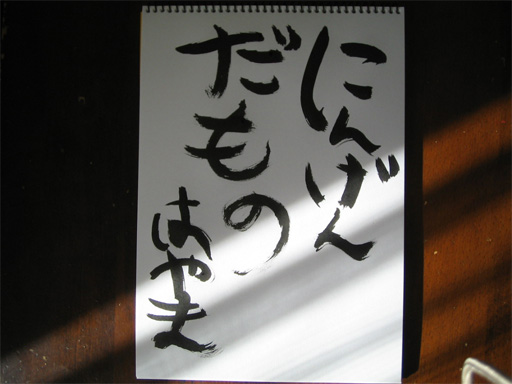 にんげん
だもの
はやを